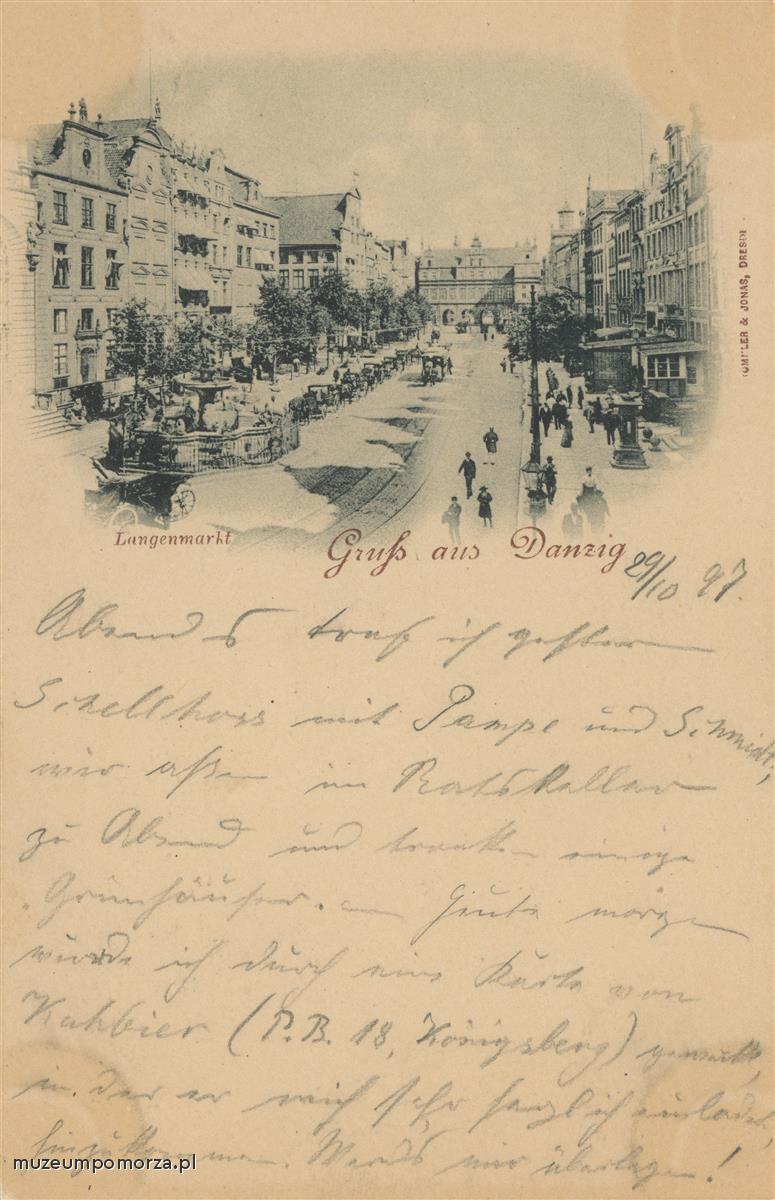 RÖMMLER & JONAS, DRESDEN
Langenmarkt
Gruß aus Danzig
29/10 97.
Abends traf ich gestern
Schellhoss mit Pampe und Schmidt;
wir aßen im Ratskeller
zu Abend und tranken einige
"Grünhäuser". Heute morgen
wurde ich durch eine Karte von
Kahbier (P.B. 18, Königsberg) geweckt,
in der er mich sehr herzlich einladet,
hinzukommen. Werds mir überlegen!
muzeumpomorza.pl